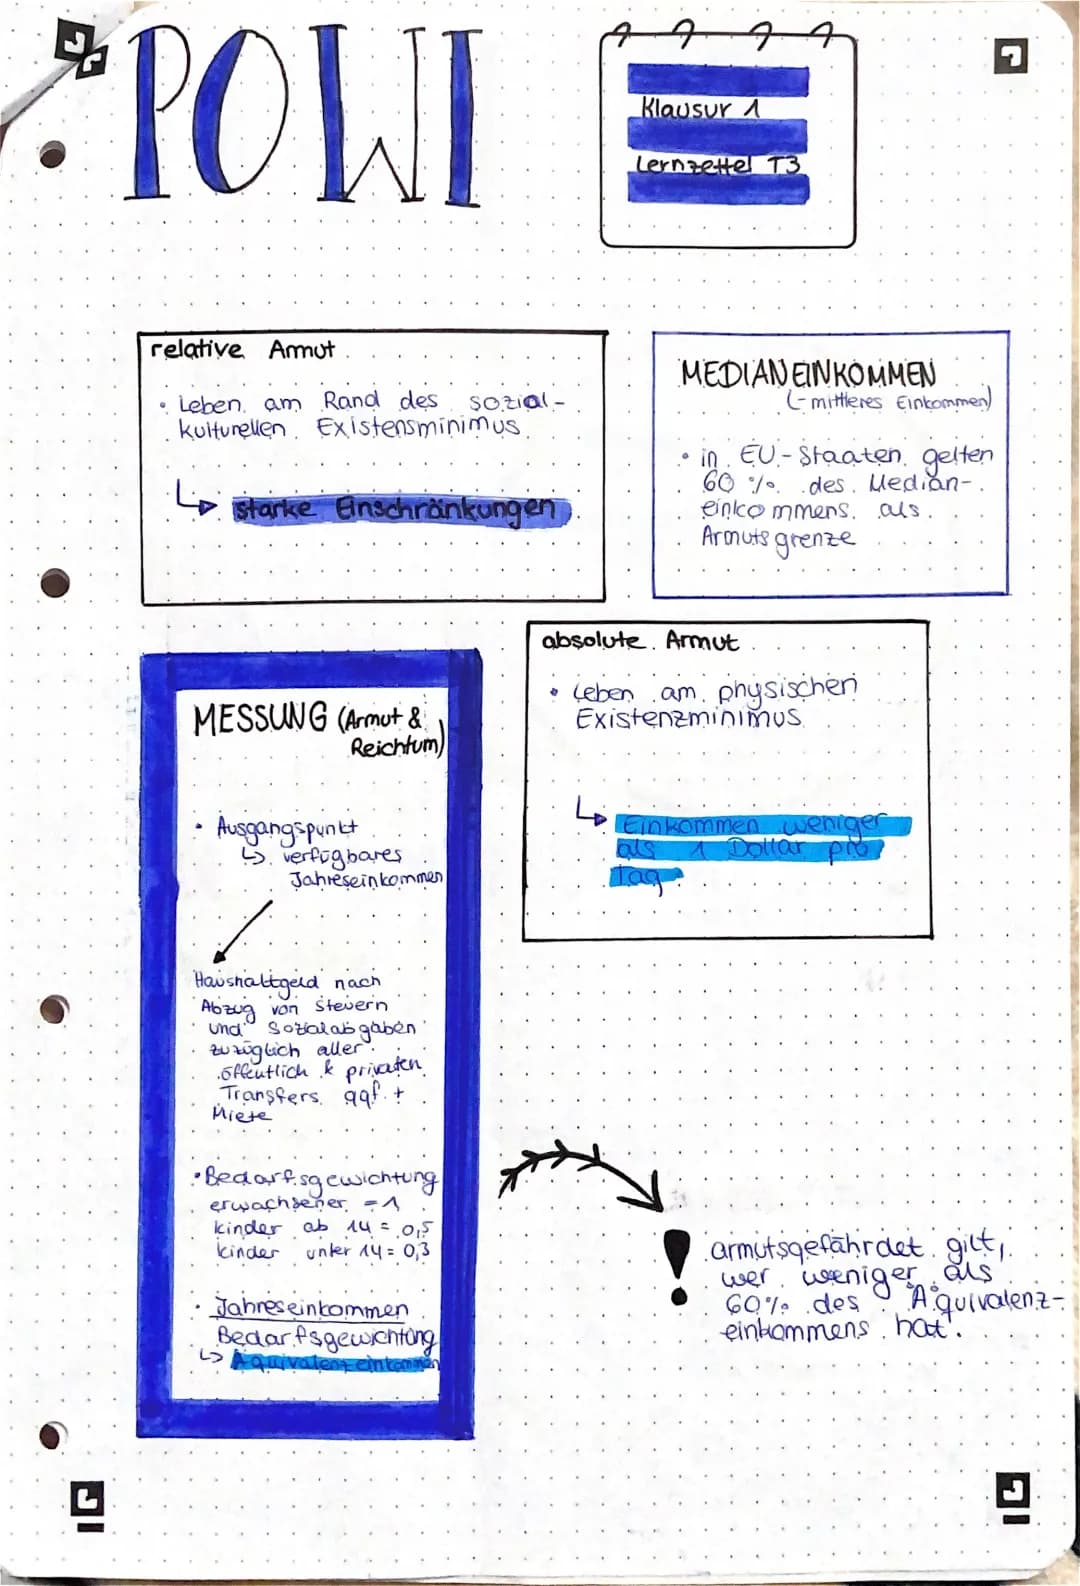 POWI
Klausur 1
Lernzettel T3
relative Armut
• Leben am Rand des sozial-
kulturellen Existensminimus
↳ starke Einschränkungen
MEDIANEINKOMMEN
(-mittleres Einkommen)
• in EU-Staaten gelten
60 % des Median-
einkommens als
Armutsgrenze
absolute Armut
• Leben am physischen
Existenzminimus
↳ Einkommen weniger
als 1 Dollar pro
Tag
MESSUNG (Armut &
Reichtum)
• Ausgangspunkt
↳ verfügbares
Jahreseinkommen
Haushaltgeld nach
Abzug von Steuern
und Sozialabgaben
zuzüglich aller
öffentlich & privaten
Transfers ggf. +
Miete
• Bedarfsgewichtung
erwachsener = 1
kinder ab 14 = 0,5
kinder unter 14 = 0,3
• Jahreseinkommen
Bedarfsgewichtung
↳ Äquivalenzeinkommen
! armutsgefährdet gilt,
wer weniger als
60% des Äquivalenz-
einkommens hat.